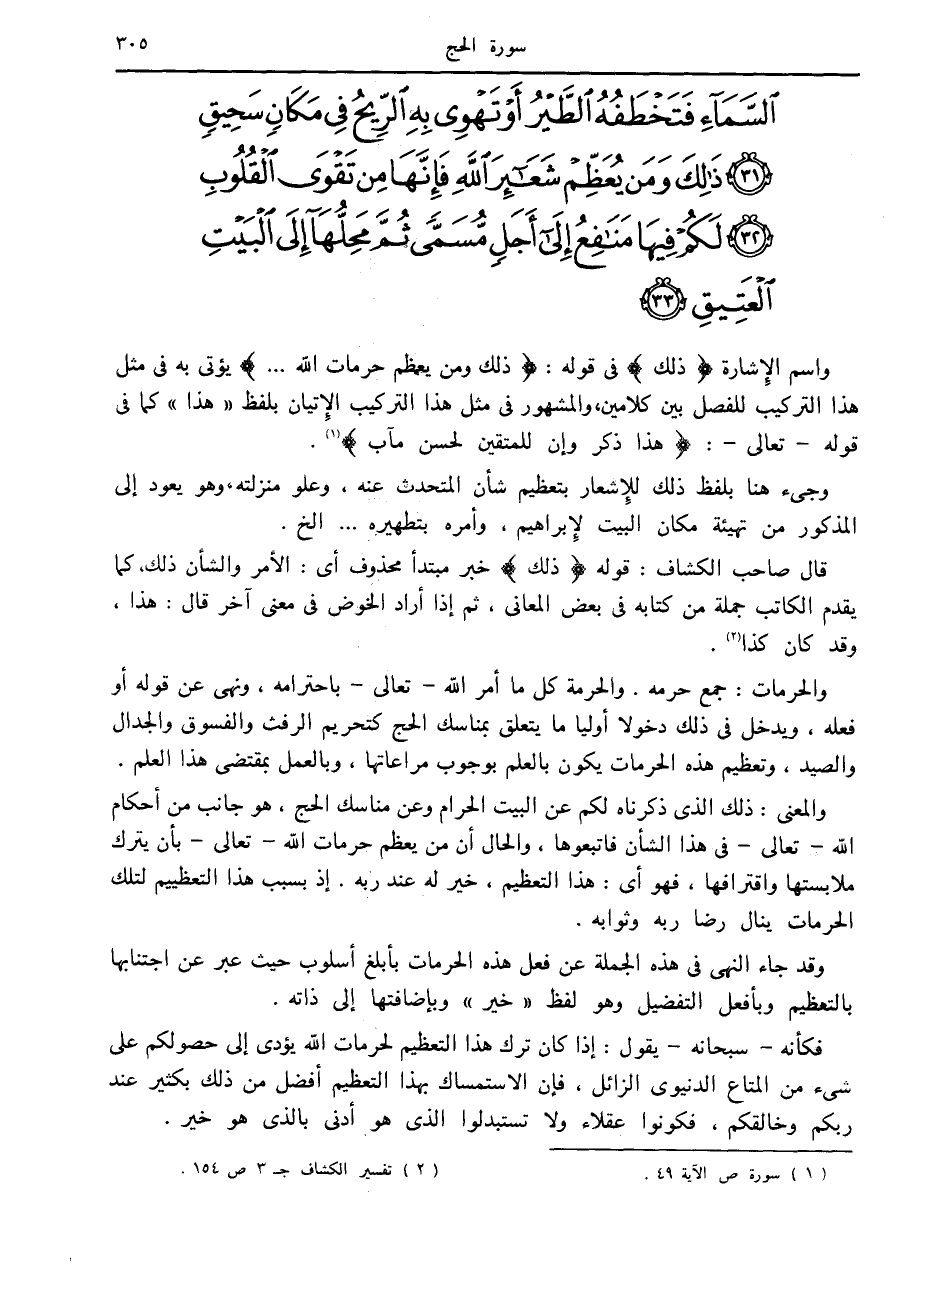 سورة الحج ٣٠٥
ٱلسَّمَآءِ فَتَخْطَفُهُ ٱلطَّيْرُ أَوْ تَهْوِى بِهِ ٱلرِّيحُ فِى مَكَانٍ سَحِيقٍ
﴿٣١﴾ ذَٰلِكَ وَمَن يُعَظِّمْ شَعَـٰٓئِرَ ٱللَّهِ فَإِنَّهَا مِن تَقْوَى ٱلْقُلُوبِ
﴿٣٢﴾ لَكُمْ فِيهَا مَنَـٰفِعُ إِلَىٰٓ أَجَلٍ مُّسَمًّى ثُمَّ مَحِلُّهَآ إِلَى ٱلْبَيْتِ
ٱلْعَتِيقِ ﴿٣٣﴾
واسم الإشارة ﴿ ذلك ﴾ فى قوله : ﴿ ذلك ومن يعظم حرمات الله ... ﴾ يؤتى به فى مثل
هذا التركيب للفصل بين كلامين، والمشهور فى مثل هذا التركيب الإتيان بلفظ « هذا » كما فى
قوله - تعالى - : ﴿ هذا ذكر وإن للمتقين لحسن مآب ﴾(١) .
وجىء هنا بلفظ ذلك للإشعار بتعظيم شأن المتحدث عنه ، وعلو منزلته، وهو يعود إلى
المذكور من تهيئة مكان البيت لإبراهيم ، وأمره بتطهيره ... الخ .
قال صاحب الكشاف : قوله ﴿ ذلك ﴾ خبر مبتدأ محذوف أى : الأمر والشأن ذلك، كما
يقدم الكاتب جملة من كتابه فى بعض المعانى ، ثم إذا أراد الخوض فى معنى آخر قال : هذا ،
وقد كان كذا(٢) .
والحرمات : جمع حرمه . والحرمة كل ما أمر الله - تعالى - باحترامه ، ونهى عن قوله أو
فعله ، ويدخل فى ذلك دخولا أوليا ما يتعلق بمناسك الحج كتحريم الرفث والفسوق والجدال
والصيد ، وتعظيم هذه الحرمات يكون بالعلم بوجوب مراعاتها ، وبالعمل بمقتضى هذا العلم .
والمعنى : ذلك الذى ذكرناه لكم عن البيت الحرام وعن مناسك الحج ، هو جانب من أحكام
الله - تعالى - فى هذا الشأن فاتبعوها ، والحال أن من يعظم حرمات الله - تعالى - بأن يترك
ملابستها واقترافها ، فهو أى : هذا التعظيم ، خير له عند ربه . إذ بسبب هذا التعظييم لتلك
الحرمات ينال رضا ربه وثوابه .
وقد جاء النهى فى هذه الجملة عن فعل هذه الحرمات بأبلغ أسلوب حيث عبر عن اجتنابها
بالتعظيم وبأفعل التفضيل وهو لفظ « خير » وبإضافتها إلى ذاته .
فكأنه - سبحانه - يقول : إذا كان ترك هذا التعظيم لحرمات الله يؤدى إلى حصولكم على
شىء من المتاع الدنيوى الزائل ، فإن الاستمساك بهذا التعظيم أفضل من ذلك بكثير عند
ربكم وخالقكم ، فكونوا عقلاء ولا تستبدلوا الذى هو أدنى بالذى هو خير .
( ١ ) سورة ص الآية ٤٩ . ( ٢ ) تفسير الكشاف جـ ٣ ص ١٥٤ .